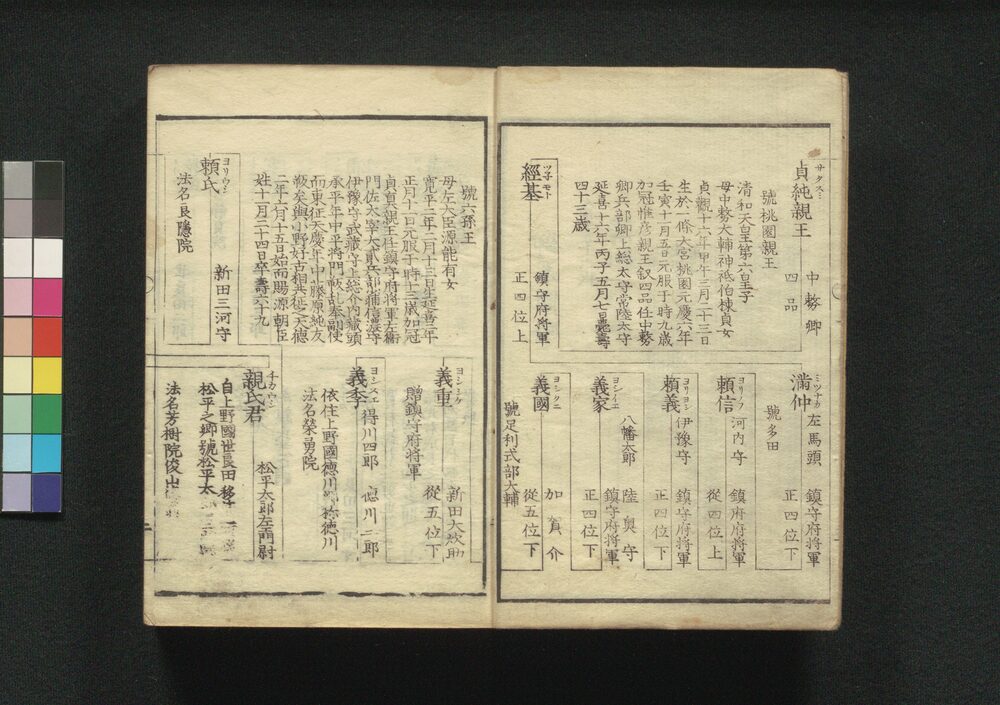 サタスミ
貞純親王 中務卿 四品
號桃園親王
清和天皇第六皇子
母中務大輔神祇伯棟貞女
貞觀十六年甲午三月二十三日
生於一條大宮桃園元慶六年
壬寅十月五日元服于時九歲
加冠惟彦親王叙四品任中務
卿兵部卿上総太守常陸太守
延喜十六年丙子五月七日薨壽
四十三歲
ツ子モト
經基 鎮守府將軍 正四位上
ミツナカ
満仲 左馬頭 鎮守府將軍 正四位下
號多田
ヨリノフ
頼信 河内守 鎮府府將軍 從四位上
ヨリヨシ
頼義 伊豫守 鎮守府將軍 正四位下
ヨシイエ
義家 八幡太郎 陸奥守 鎮守府將軍 正四位下
ヨシクニ
義國 加賀介 從五位下
號足利式部大輔
號六孫王
母左大臣源能有女
寛平二年二月十三日生延喜二年
正月十一日元服于時十三歲加冠
貞眞親王任鎮守府將軍左衛
門佐太宰大貳兵部少輔信濃守
伊豫守武藏守上総介内藏頭
承平年中平將門叛乱
而東征天慶年中藤原純友
叛矣與小野好古相共征之
二年六月十五日始而賜源朝臣
姓十一月二十四日卒壽六十九
ヨリウシ
頼氏 新田三河守
法名良隱院
ヨシシケ
義重 新田大炊助 從五位下
贈鎮守府將軍
ヨシスエ
義季 得川四郎 徳川二郎
依住上野國德川 称徳川
法名榮勇院
チカウシ
親氏君 松平太郎左衛門尉
自上野國世良田移
松平之郷號松平太
法名芳樹院俊山